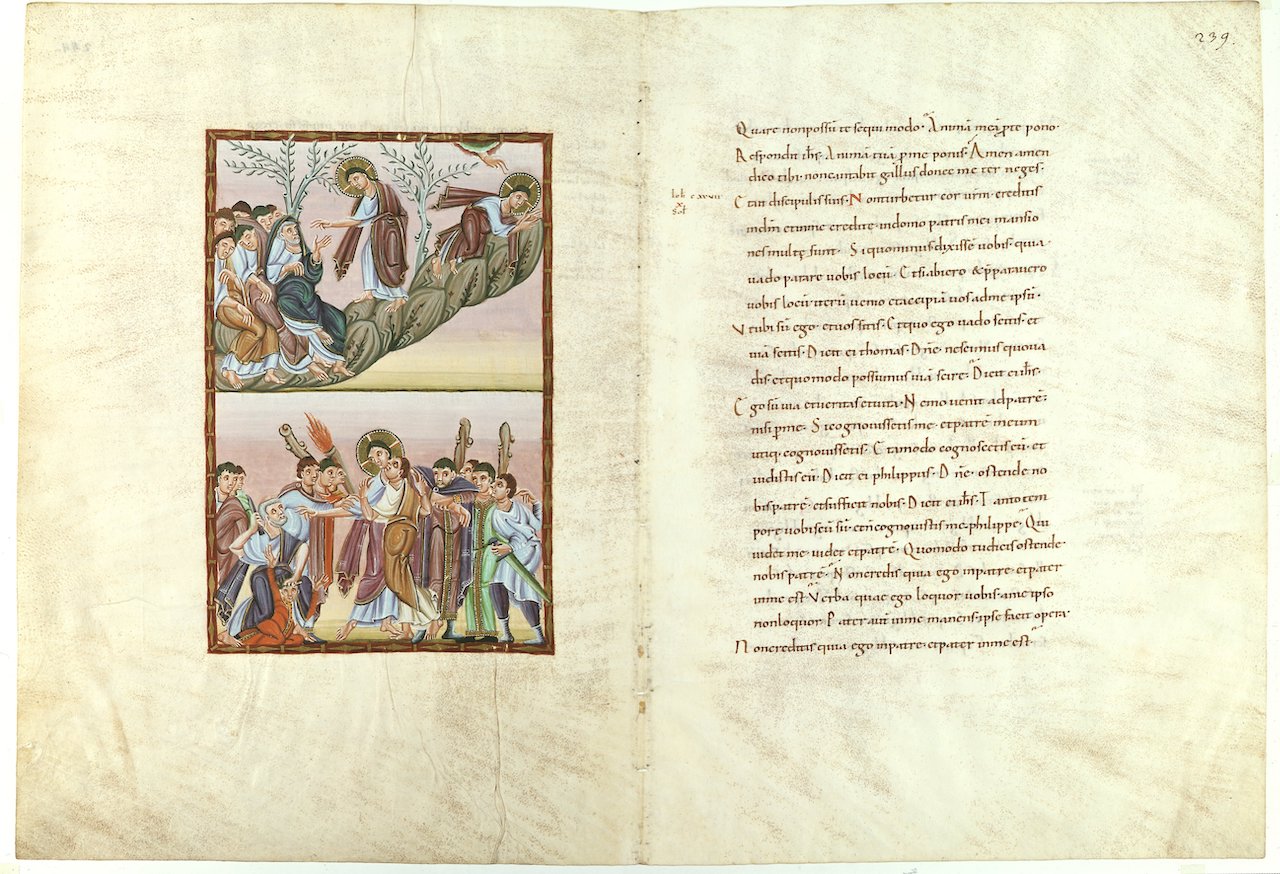 239.
Quare nonpossū te sequi modo. Animā meā p̱te pono.
Respondit ihs. Animā tuā p̱me ponis. Amen amen
dico tibi. noncantabit gallus donec me ter neges.
Et ait discipulis suis. Non turbetur cor urm. creditis
indm̄ etinme credite. indomo patris mei mansio
nesmultę sunt. Siquominus dixissē uobis. quia
uado parare uobis locū. Etsiabiero &p̄parauero
uobis locū. iterū uenio etaccipiā uosadme ipsū.
Vtubi sū ego. etuos sitis. Etquo ego uado scitis. et
uiā scitis. Dicit ei thomas. Dn̄e. nescimus quoua
dis. etquomodo possumus uiā scire. Dicit ei ihs.
Ego sū uia etueritas etuita. Nemo uenit adpatrē.
nisi p̱me. Sicognouissetis me. etpatrē meum
utiq. cognouissetis. Et amodo cognoscetis eū. et
uidistis eū. Dicit ei philippus. Dn̄e. ostende no
bis patrē. etsufficit nobis. Dicit ei ihs. Tanto tem
porę uobiscū sū. etn̄ cognouistis me. philippe. Qui
uidet me. uidet etpatrē. Quomodo tudicis ostende
nobis patrē. Noncredis quia ego inpatre. etpater
inme est. Verba quae ego loquor uobis. ame ipso
nonloquor. Pater autē inme manens. ipse facit opera.
Noncreditis quia ego inpatre. etpater inme est.